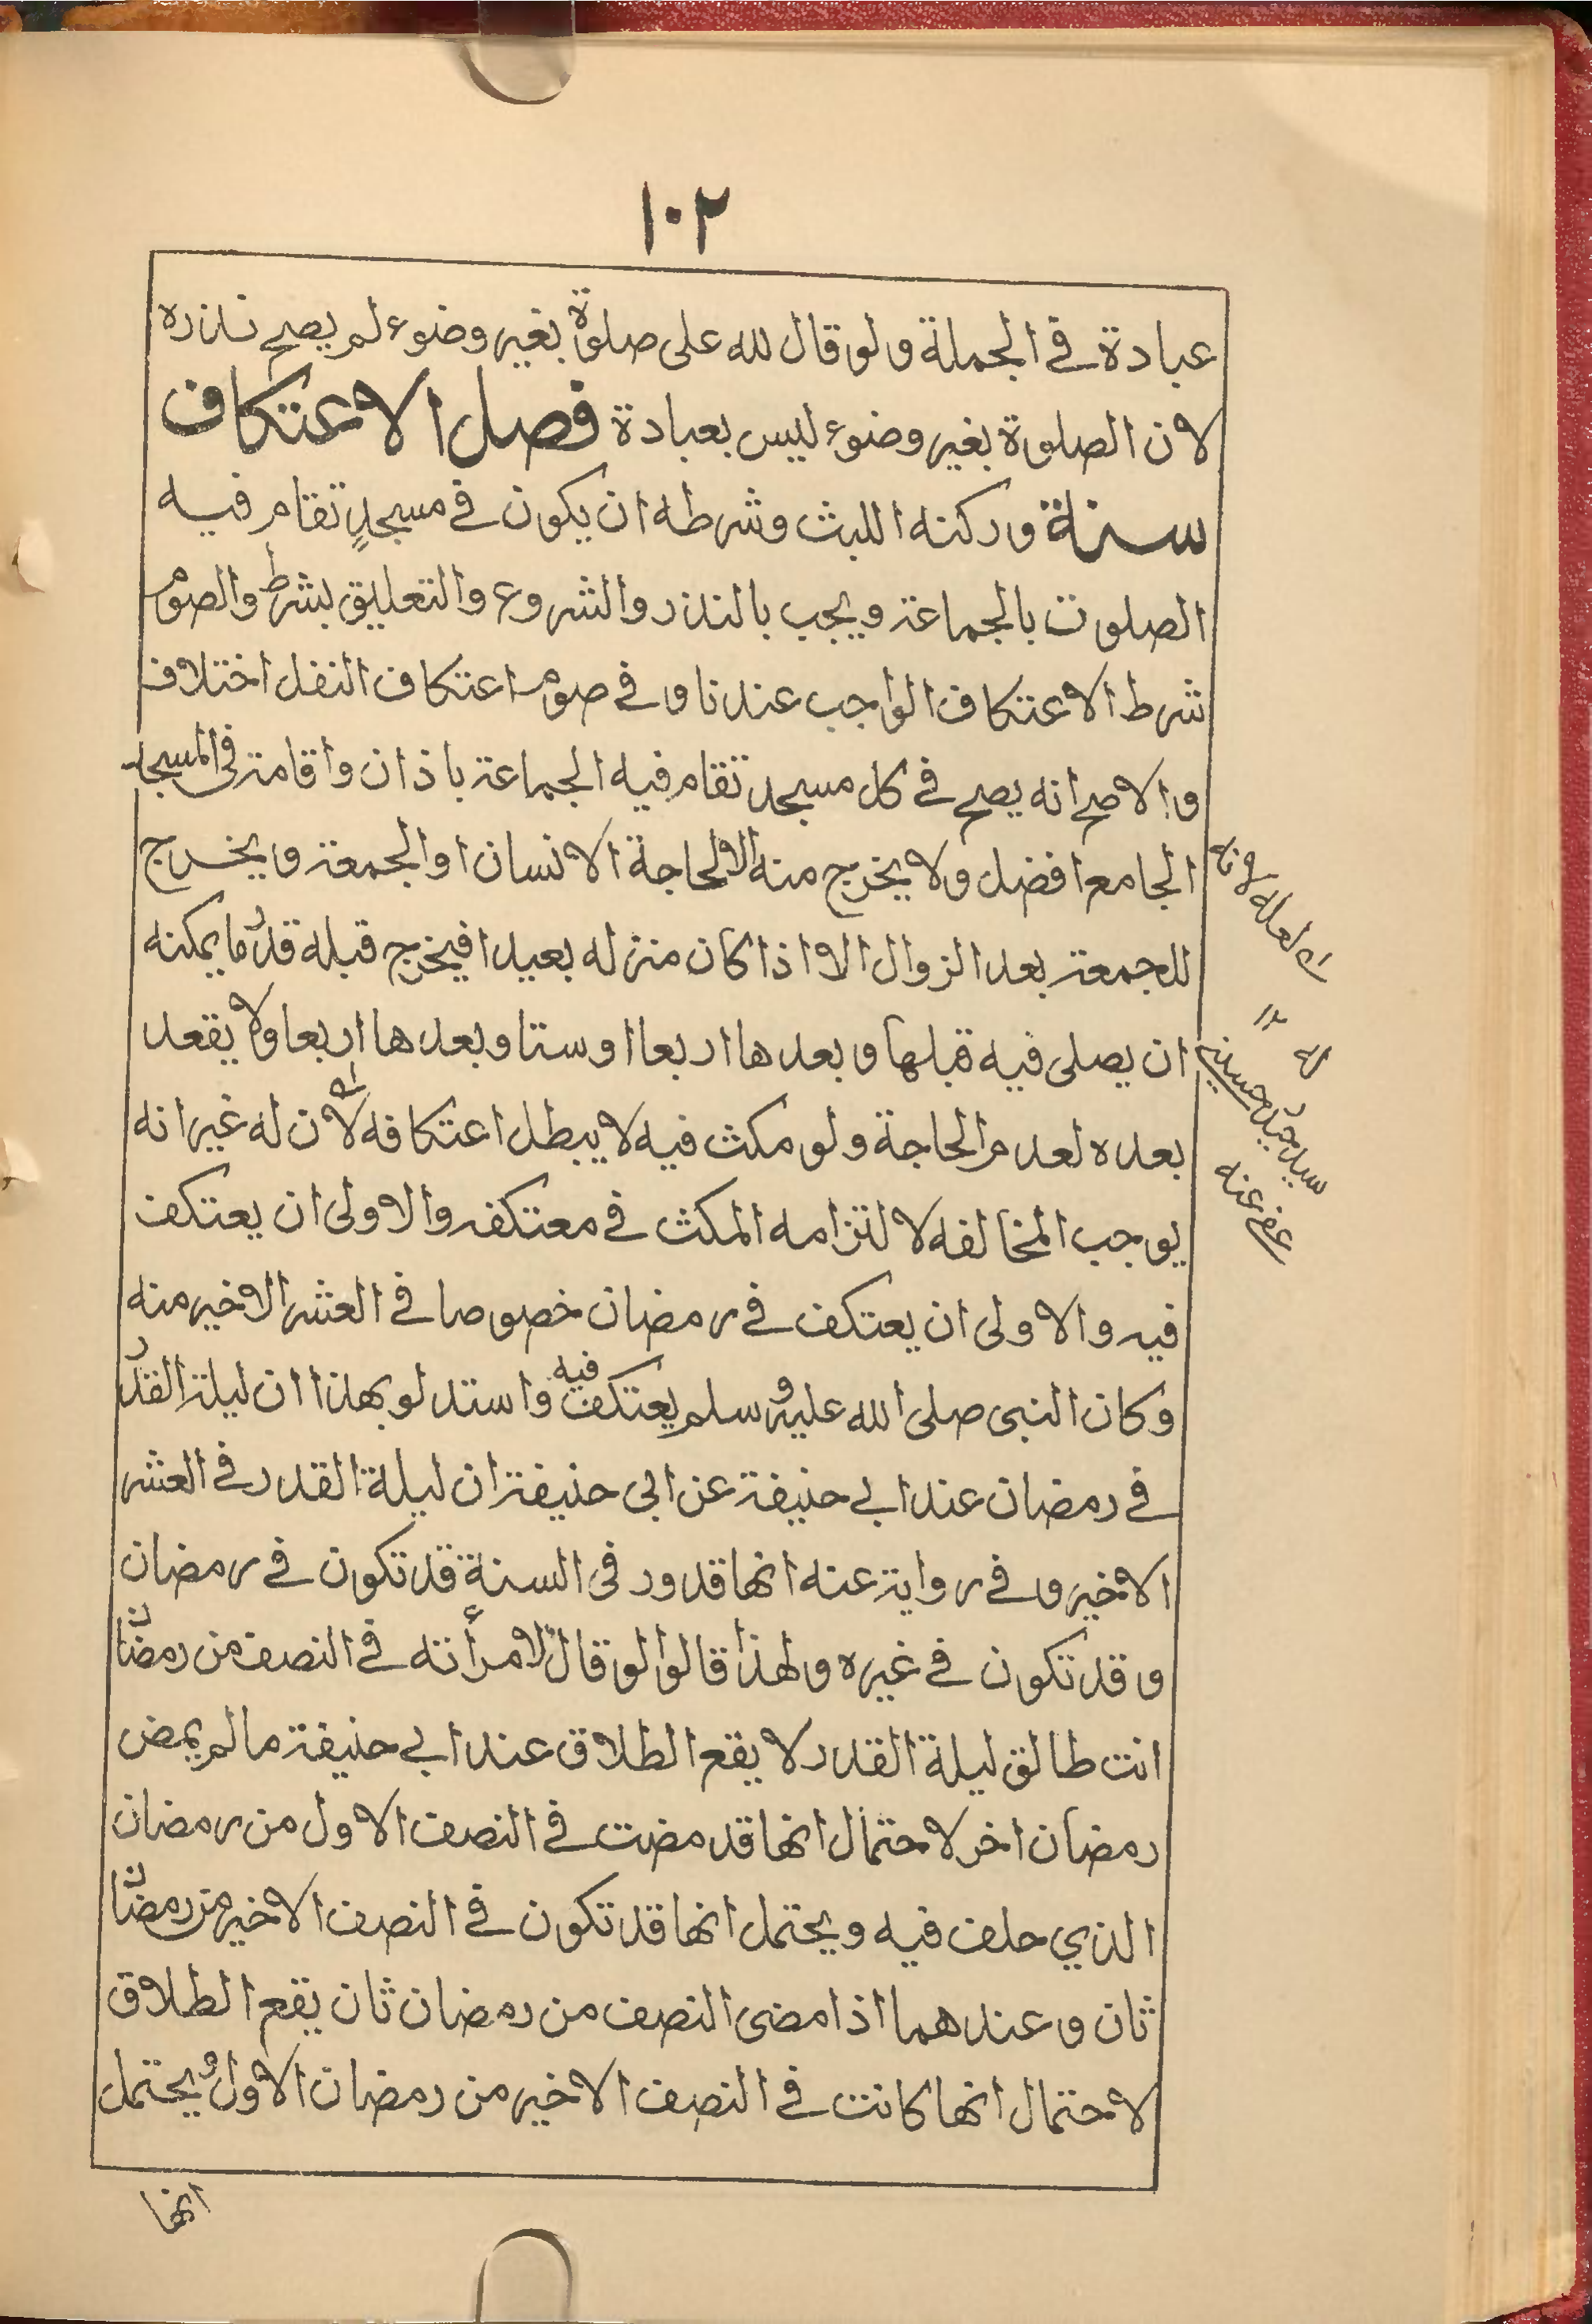 ١٠٢
عبادة في الجملة ولو قال لله على صلوة بغير وضوء لم يصح نذره
لان الصلوة بغير وضوء ليس بعبادة فصل الاعتكاف
سنة وركنه اللبث وشرطه ان يكون في مسجدٍ تقام فيه
الصلوت بالجماعة ويجب بالنذر والشروع والتعليق بشرط والصوم
شرط الاعتكاف الواجب عندنا وفي صوم اعتكاف النفل اختلاف
والاصح انه يصح في كل مسجد تقام فيه الجماعة باذان واقامة في المسجد
الجامع افضل ولا يخرج منه الا لحاجة الانسان او الجمعة ويخرج
للجمعة بعد الزوال الا اذا كان منزله بعيدا فيخرج قبله قدر ما يمكنه
ان يصلى فيه قبلها وبعدها اربعا او ستا وبعدها اربعا ولا يقعد
بعده لعدم الحاجة ولو مكث فيه لا يبطل اعتكافه لان له غير انه
يوجب المخالفه لالتزامه المكث في معتكفه والاولى ان يعتكف
فيه والاولى ان يعتكف في رمضان خصوصا في العشر الاخير منه
وكان النبى صلى الله عليه وسلم يعتكف فيه واستدلو بهذا ان ليلة القدر
في رمضان عند ابي حنيفة عن ابى حنيفة ان ليلة القدر في العشر
الاخير وفي رواية عنه انها قدور فى السنة قد تكون في رمضان
وقد تكون في غيره ولهذا قالوا لو قال لامرأته في النصف من رمضان
انت طالق ليلة القدر لا يقع الطلاق عند ابي حنيفة ما لم يمض
رمضان اخر لاحتمال انها قد مضت في النصف الاول من رمضان
الذي حلف فيه ويحتمل انها قد تكون في النصف الاخير من رمضان
ثان وعندهما اذا مضى النصف من رمضان ثان يقع الطلاق
لاحتمال انها كانت في النصف الاخير من رمضان الاول ويحتمل
انها
لعله لانه
له ١٢
سيد محمد حسينى
عفى عنه